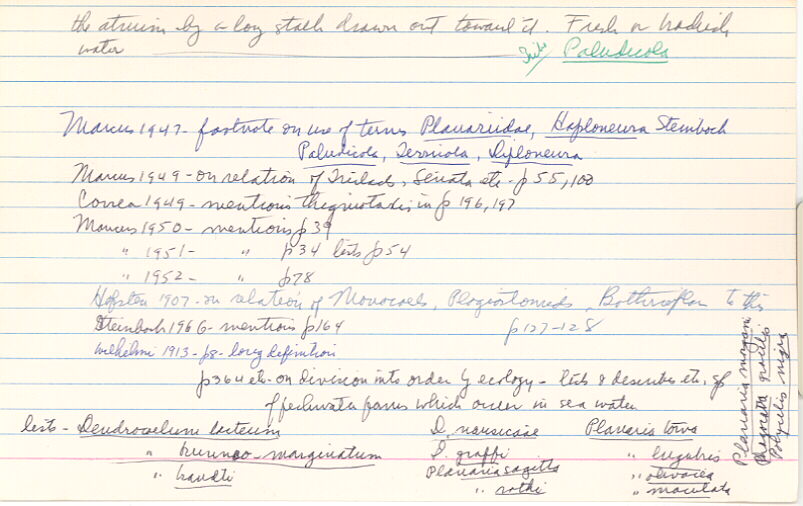 the atrium by a long stalk drawn out toward it. Fresh or brackish
water
Paludicola
Marcus 1947 - footnote on use of terms Planariidae, Haploneura Steinboch
Paludicola, Terricola, Diploneura
Marcus 1949 - on relation of Triclads, Seriata etc - p 55, 100
Correa 1949 - mentions thigmotaxis in p 196, 197
Marcus 1950 - mentions p 39
" 1951 - " p 34 lists p 54
" 1952 - " p 78
Hofsten 1907 - on relation of Monocoels, Plagiostomids, Bothrioplan to this
Steinboch 1966 - mentions p 164 p 127-128
Wilhelmi 1913 - p8 - long definition
p 364 etc - on division into order by ecology - lists & describes etc.
of freshwater forms which occur in sea water
lists - Dendrocoelum lacteum D. nausicaae Planaria torva
" - marginatum D. graffi " lugubris
" Planaria sagitta " olivacea
" " maculata
Planaria
Polycelis nigra